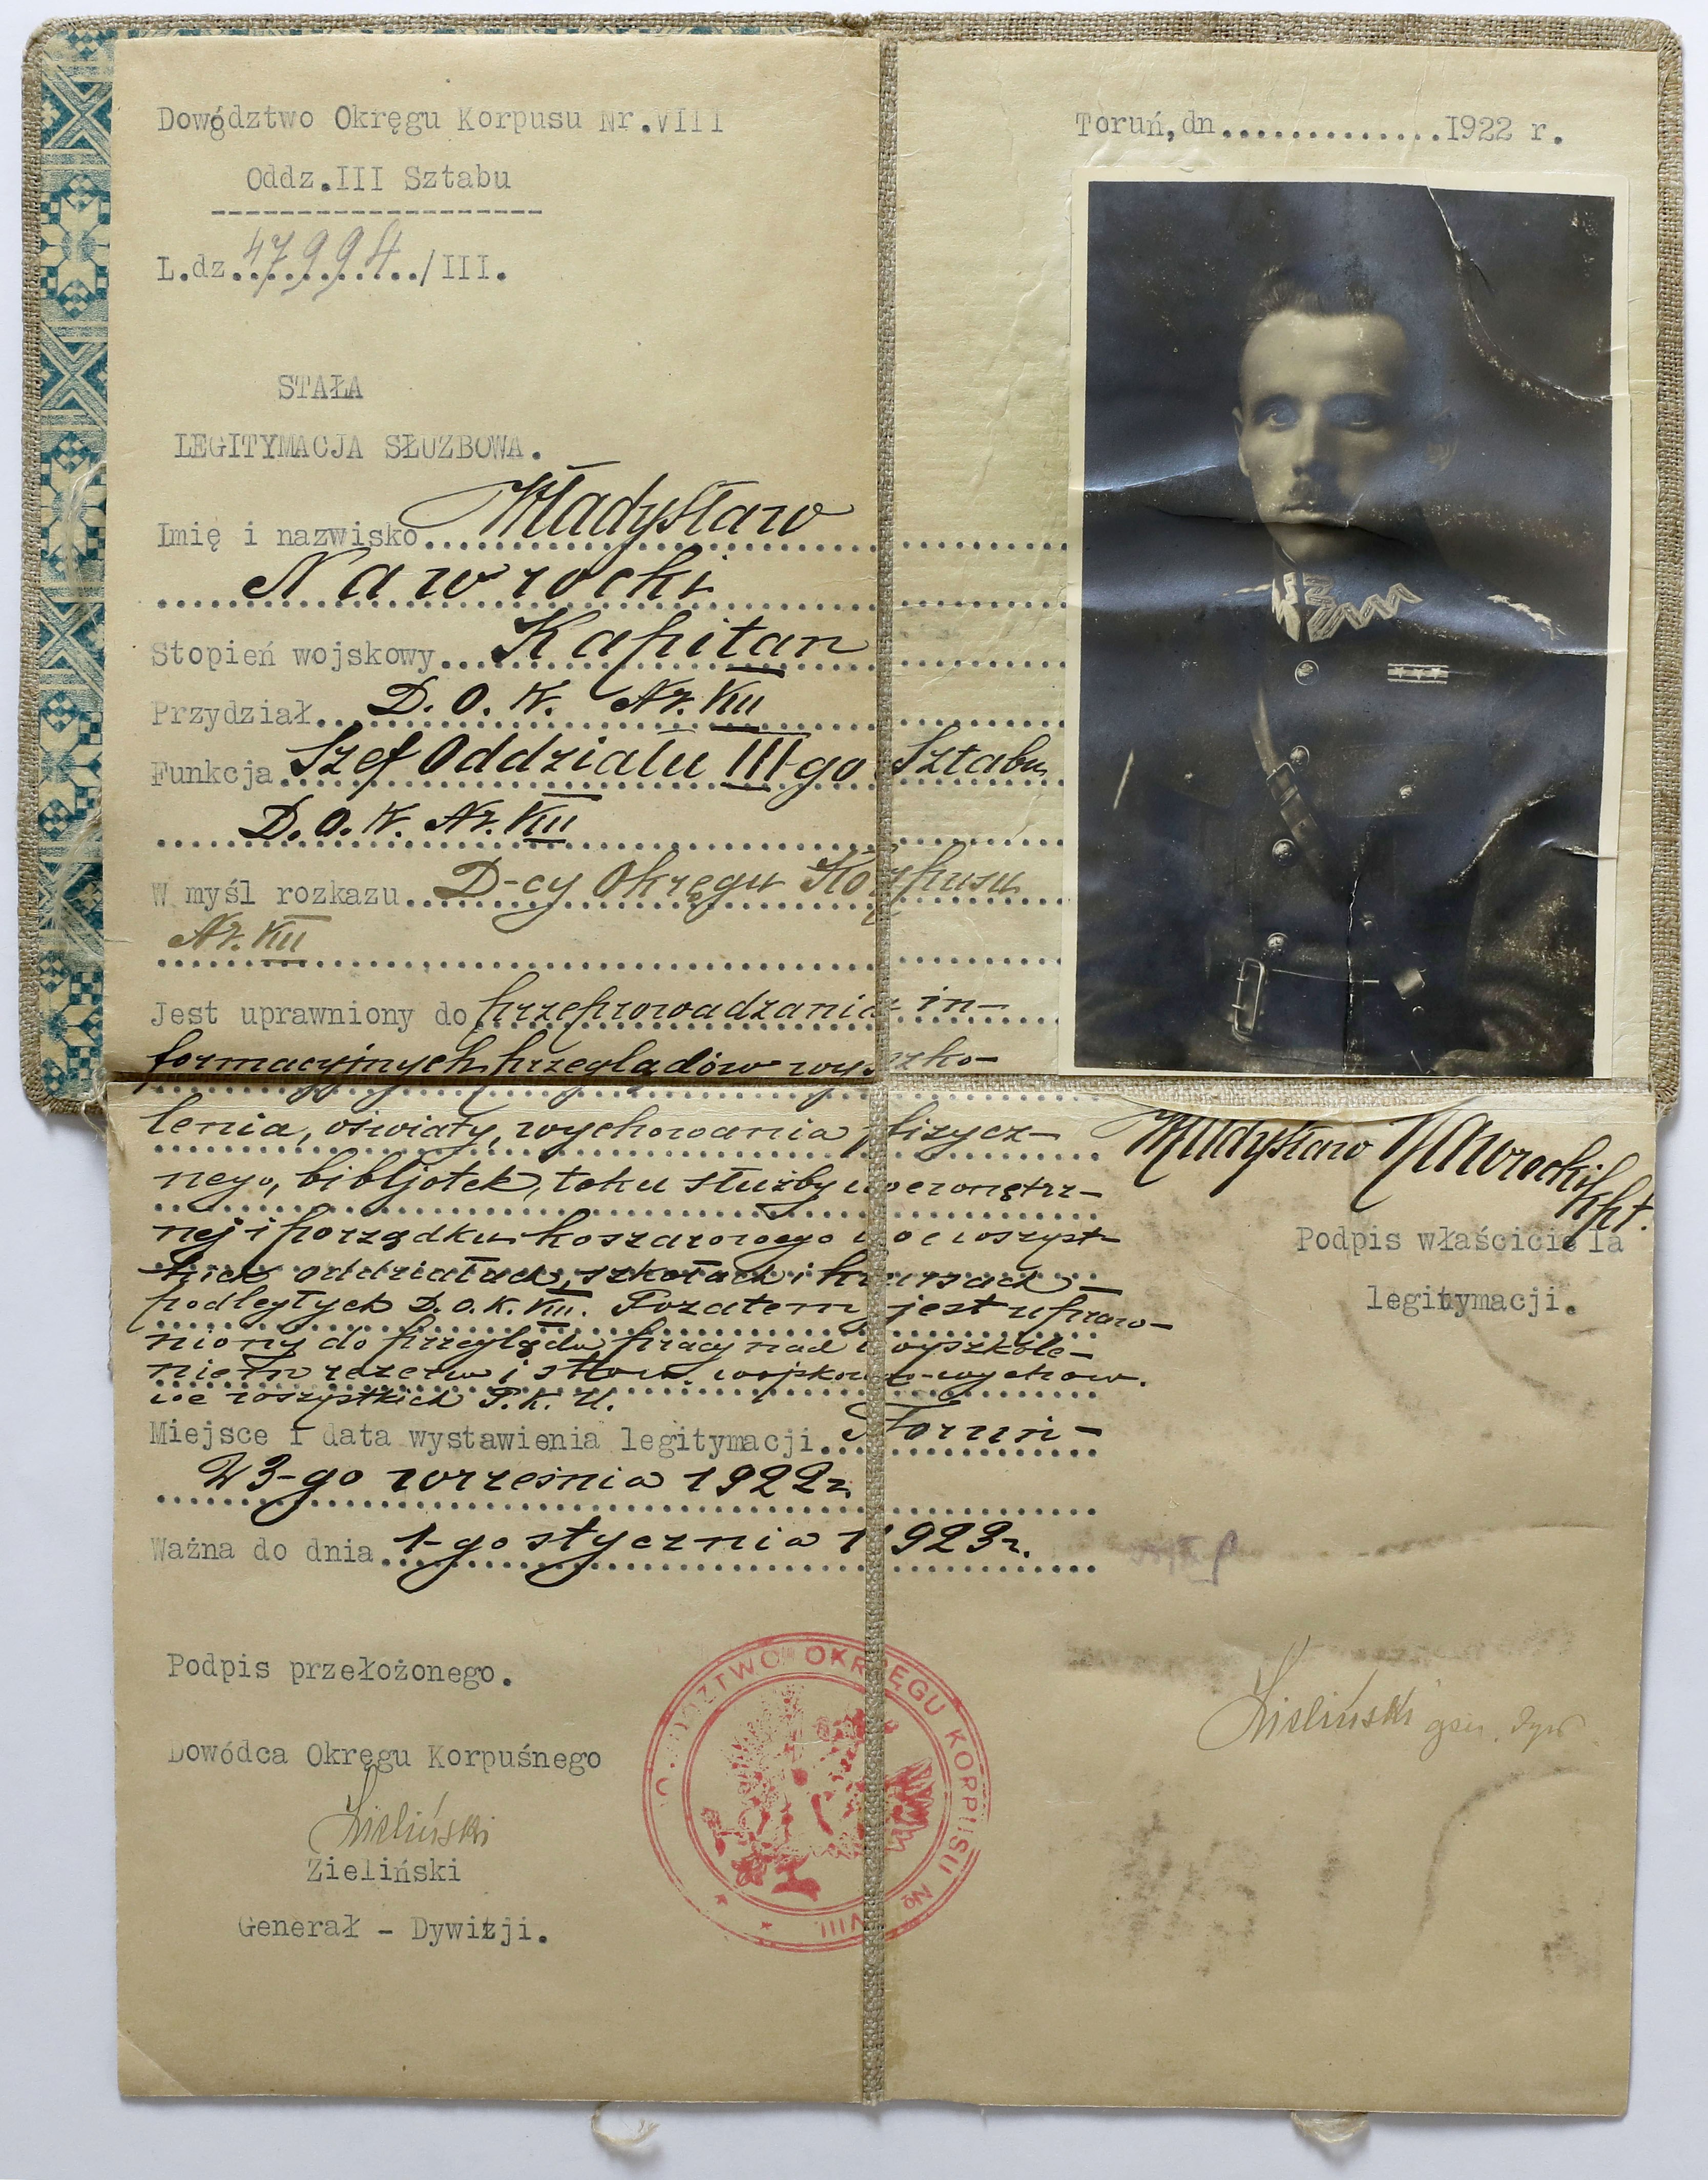 Dowództwo Okręgu Korpusu Nr.VIII
Oddz.III Sztabu
L.dz.47994./III.
Toruń,dn...............1922 r.
STAŁA
LEGITYMACJA SŁUZBOWA.
Imię i nazwisko Władysław
Nawrocki
Stopień wojskowy Kapitan
Przydział D.O.K. Nr. VIII
Funkcja Szef Oddziału III-go Sztabu
D.O.K. Nr. VIII
W myśl rozkazu D-cy Okręgu Korpusu
Nr. VIII
Jest uprawniony do przeprowadzania in-
formacyjnych przeglądów wyszko-
lenia, oświaty, wychowania fizycz-
nego, bibljotek, toku służby wewnętrz-
nej i porządku koszarowego we wszyst-
kich oddziałach, szkołach i kursach
podległych D.O.K. VIII. Pozatem jest upraw-
niony do przeglądu pracy nad wyszkole-
niem rezerw i stow. wojskowo-wychow.
we wszystkich P.K.U.
Miejsce i data wystawienia legitymacji Toruń -
23-go września 1922 r.
Ważna do dnia 1-go stycznia 1923 r.
Władysław Nawrocki kpt.
Podpis właściciela
legitymacji.
Podpis przełożonego.
Dowódca Okręgu Korpuśnego
Zieliński
Zieliński
Generał - Dywizji.
Zieliński gen. dyw.
DOWÓDZTWO OKRĘGU KORPUSU No VIII.